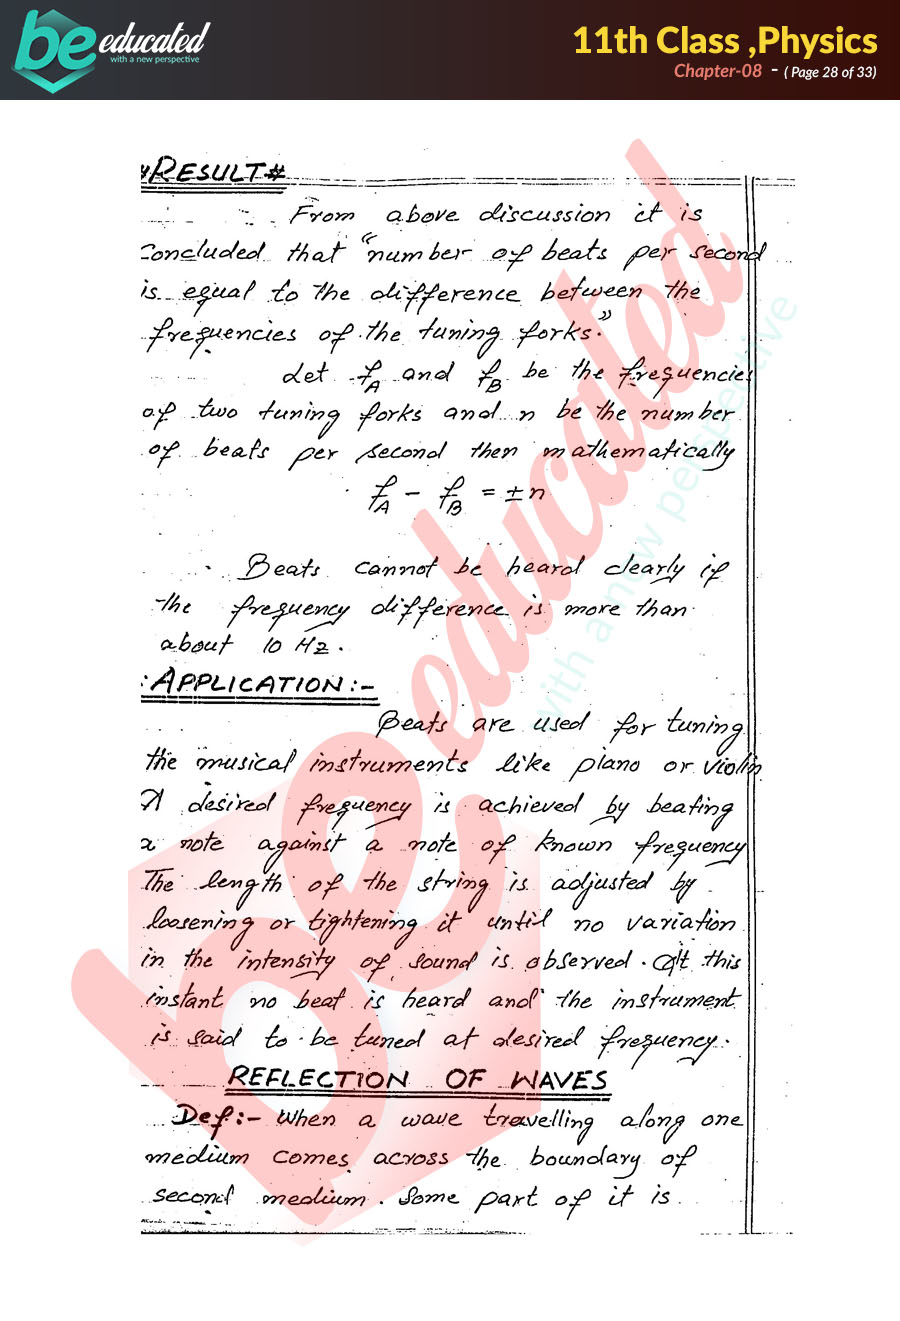 be educated
with a new perspective
11th Class ,Physics
Chapter-08 - ( Page 28 of 33)
RESULT#
From above discussion it is
concluded that "number of beats per second
is equal to the difference between the
frequencies of the tuning forks."
Let fA and fB be the frequencies
of two tuning forks and n be the number
of beats per second then mathematically
fA - fB = ±n
Beats cannot be heard clearly if
the frequency difference is more than
about 10 Hz.
:APPLICATION:-
Beats are used for tuning
the musical instruments like piano or violin
A desired frequency is achieved by beating
a note against a note of known frequency
The length of the string is adjusted by
loosening or tightening it until no variation
in the intensity of sound is observed. At this
instant no beat is heard and the instrument
is said to be tuned at desired frequency.
REFLECTION OF WAVES
Def:- When a wave travelling along one
medium comes across the boundary of
second medium. Some part of it is
be educated
with a new perspective